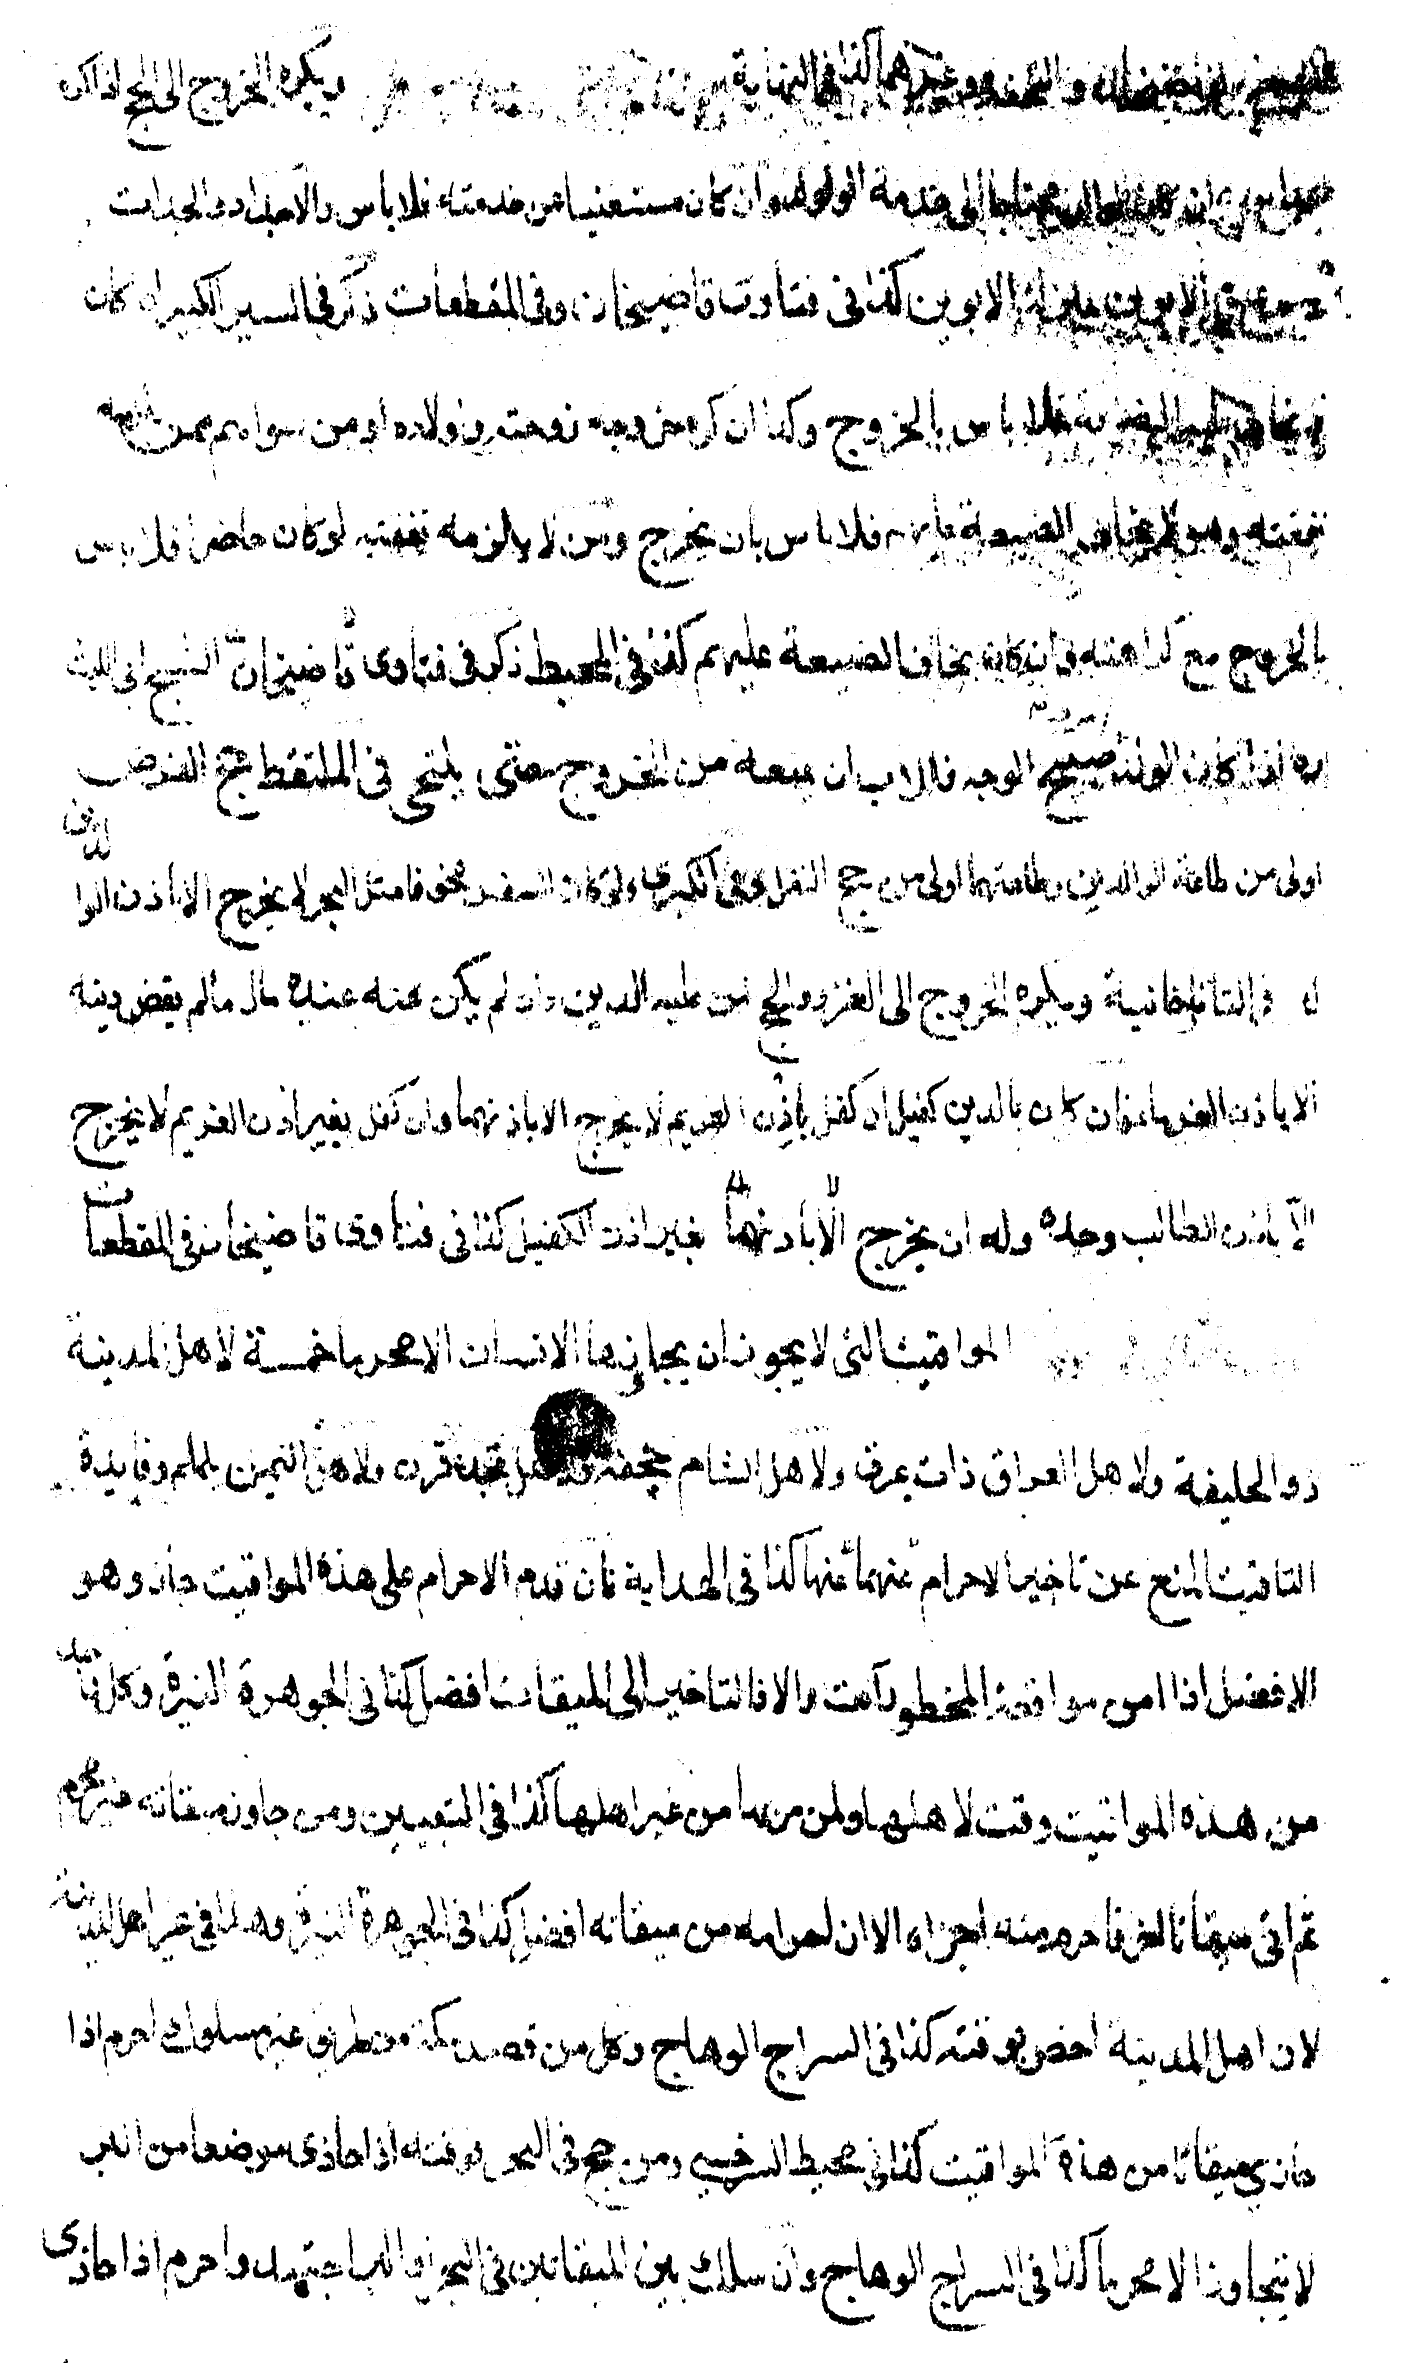 والتحفة وغيرهما كذا في النهاية ويكره الخروج الى الحج اذا كره
محتاجا الى خدمة الولد وان كان مستغنيا عن خدمته فلا باس والاجداد والجدات
الابوين بمنزلة الابوين كذا فى فتاوى قاضيخان وفي المقطعات ذكر في السير الكبير ان كان
لا يخاف عليه الضيعة فلا باس بالخروج وكذا ان كره خروجه زوجته واولاده او من سواهم ممن تلزمه
نفقته وهو لا يخاف الضيعة عليهم فلا باس بان يخرج ومن لا يلزمه نفقته لو كان حاضرا فلا باس
بالخروج مع كراهته وان كان يخاف الضيعة عليهم كذا في المحيط ذكر فى فتاوى قاضيخان الشيخ ابى الليث
ره اذا كان الولد صبيح الوجه فللاب ان يمنعه من الخروج حتى يلتحى فى الملتقط حج الفرض
اولى من طاعة الوالدين وطاعتهما اولى من حج النفل وفى الكبرى ولو كان السفر مخوفا مثل البحر لا يخرج الا باذن الوا
لدين
ك فى التاتارخانية ويكره الخروج الى الغزو والحج لمن عليه الدين وان لم يكن عنه عنده مال مالم يقض دينه
الا باذن الغرماء فان كان بالدين كفيل ان كفل باذن الغريم لا يخرج الا باذنهما وان كفل بغير اذن الغريم لا يخرج
الا باذن الطالب وحده وله ان يخرج الا باذنهما بغير اذن الكفيل كذا فى فتاوى قاضيخان فى المقطعات
المواقيت التى لا يجوز ان يجاوزها الانسان الا محرما خمسة لاهل المدينة
ذو الحليفة ولاهل العراق ذات عرق ولاهل الشام جحفة ولاهل نجد قرن ولاهل اليمن يلملم وفايدة
التاقيت المنع عن تاخير الاحرام عنهما عنها كذا فى الهداية فان قدم الاحرام على هذه المواقيت جاز وهو
الافضل اذا امن مواقعة المحظورات والا فالتاخير الى الميقات افضل كذا فى الجوهرة النيرة وكل واحد
من هذه المواقيت وقت لاهلها ولمن مر بها من غير اهلها كذا فى التبيين ومن جاوز ميقاته غير محرم
ثم اتى ميقاتا اخر فاحرم منه اجزاه الا ان احرامه من ميقاته افضل كذا فى الجوهرة النيرة وهذا فى غير اهل المدينة
لان اهل المدينة اخص بوقته كذا فى السراج الوهاج وكل من قصد مكة من طريق غير مسلوك احرم اذا
حاذى ميقاتا من هذه المواقيت كذا فى محيط السرخسي ومن حج فى البحر فوقته اذا حاذى موضعا من البر
لا يتجاوز الا محرما كذا فى السراج الوهاج وان سلك بين الميقاتين فى البحر او البر اجتهد واحرم اذا حاذى